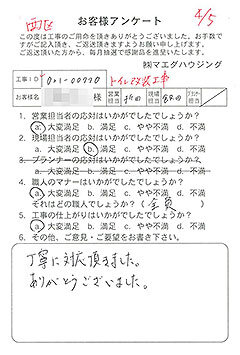 西区 4/5
お客様アンケート
この度は工事のご用命を頂きありがとうございました。お手数で
すがご記入頂き、ご返送頂きますようお願い申し上げます。
ご返送頂いた方から、毎月抽選で感謝品を進呈いたします。
㈱マエダハウジング
工事ID 701-00778 トイレ改装工事
お客様名 様 営業担当 現場担当 プランナー担当
1. 営業担当者の応対はいかがでしたでしょうか?
a. 大変満足 b. 満足 c. やや不満 d. 不満
2. 現場担当者の応対はいかがでしたでしょうか?
a. 大変満足 b. 満足 c. やや不満 d. 不満
3. プランナーの応対はいかがでしたでしょうか?
a. 大変満足 b. 満足 c. やや不満 d. 不満
4. 職人のマナーはいかがでしたでしょうか?
a. 大変満足 b. 満足 c. やや不満 d. 不満
それはどの職人でしょうか?(全員)
5. 工事の仕上がりはいかがでしたでしょうか?
a. 大変満足 b. 満足 c. やや不満 d. 不満
6. その他、ご意見・ご要望をお書き下さい。
丁寧に対応頂きました。
ありがとうございました。